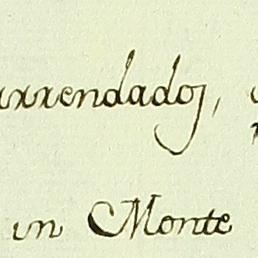 arrendados,
un Monte